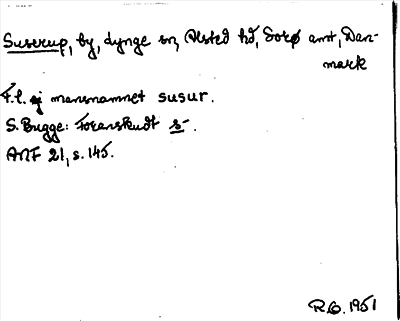 Suserup, by, Lynge sn, Alsted hd, Sorø amt, Dan-
mark
F.l. ej mansnamnet susur.
S. Bugge: Foranskudt s-.
ANF 21, s. 145.
R.O. 1951